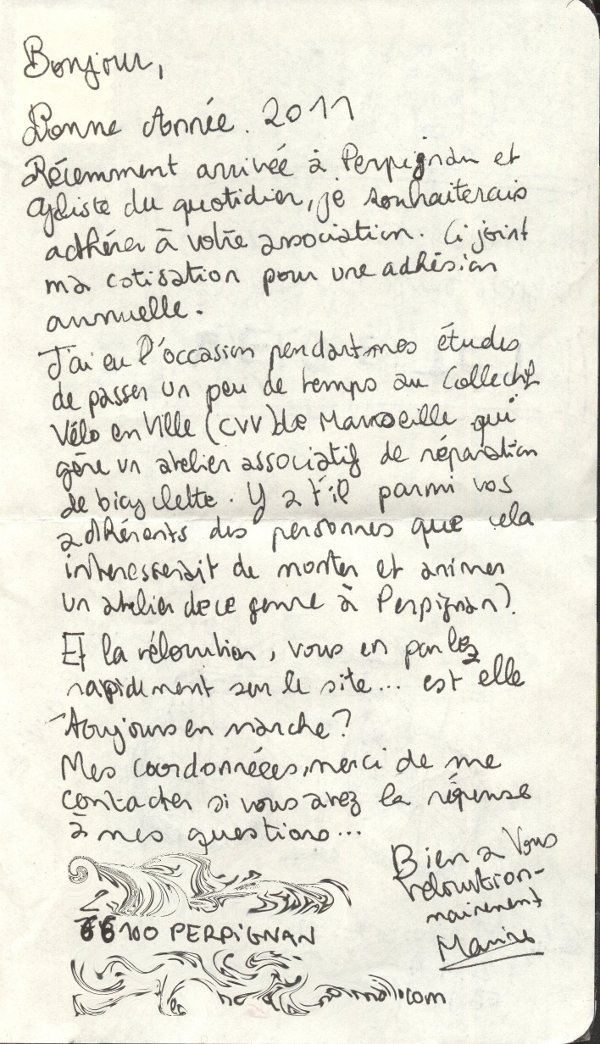 Bonjour,
Bonne Année. 2011
Récemment arrivée à Perpignan et
cycliste du quotidien, je souhaiterais
adhérer à votre association. Ci joint
ma cotisation pour une adhésion
annuelle.
J'ai eu l'occasion pendant mes études
de passer un peu de temps au Collectif
Vélo en Ville (CVV) de Marseille qui
gère un atelier associatif de réparation
de bicyclette. Y a t'il parmi vos
adhérents des personnes que cela
interesserait de monter et animer
un atelier de ce genre à Perpignan?
Et la vélorution, vous en parlez
rapidement sur le site... est elle
toujours en marche?
Mes coordonnées, merci de me
contacter si vous avez la réponse
à mes questions...
Bien a vous
vélorution-
nairement
66100 PERPIGNAN
.com